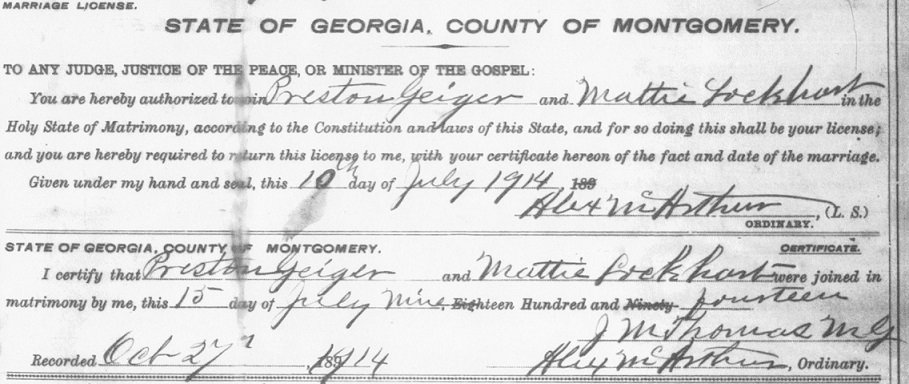 MARRIAGE LICENSE.
STATE OF GEORGIA, COUNTY OF MONTGOMERY.
TO ANY JUDGE, JUSTICE OF THE PEACE, OR MINISTER OF THE GOSPEL:
You are hereby authorized to join Preston Geiger and Mattie Lockhart in the
Holy State of Matrimony, according to the Constitution and laws of this State, and for so doing this shall be your license;
and you are hereby required to return this license to me, with your certificate hereon of the fact and date of the marriage.
Given under my hand and seal, this 10th day of July 1914 189
Alex McArthur, (L. S.)
ORDINARY.
STATE OF GEORGIA, COUNTY OF MONTGOMERY. CERTIFICATE.
I certify that Preston Geiger and Mattie Lockhart were joined in
matrimony by me, this 15 day of July Nine, Eighteen Hundred and Ninety fourteen
J M Thomas M G
Recorded Oct 27th, 1914 Alex McArthur, Ordinary.